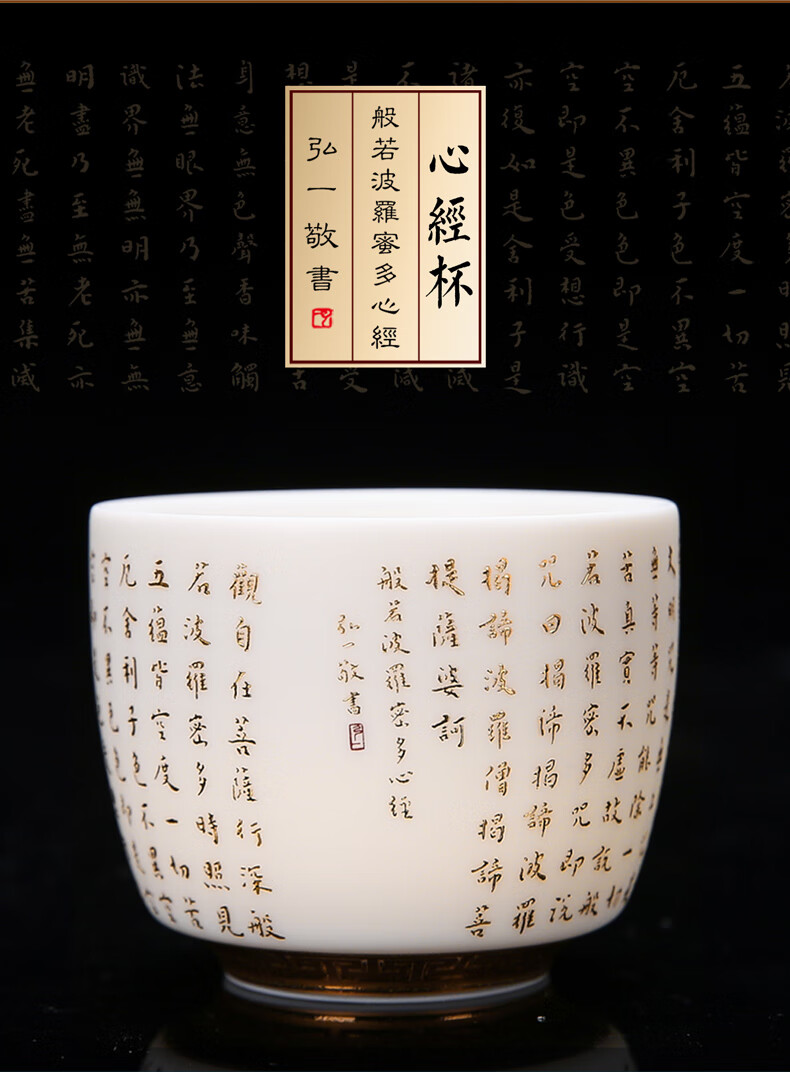 心經杯
般若波羅蜜多心經
弘一敬書
五蘊皆空度一切苦
厄舍利子色不異空
空不異色色即是空
空即是色受想行識
亦復如是舍利子是
諸
不
是
想
身意無色聲香味觸
法無眼界乃至無意
識界無無明亦無無
明盡乃至無老死亦
無老死盡無苦集滅
無等等咒能除一切
苦真實不虛故說般
若波羅密多咒即說
咒曰揭諦揭諦波羅
揭諦波羅僧揭諦菩
提薩婆訶
般若波羅密多心經
弘一敬書
觀自在菩薩行深般
若波羅密多時照見
五蘊皆空度一切苦
厄舍利子色不異空
空不異色色即是